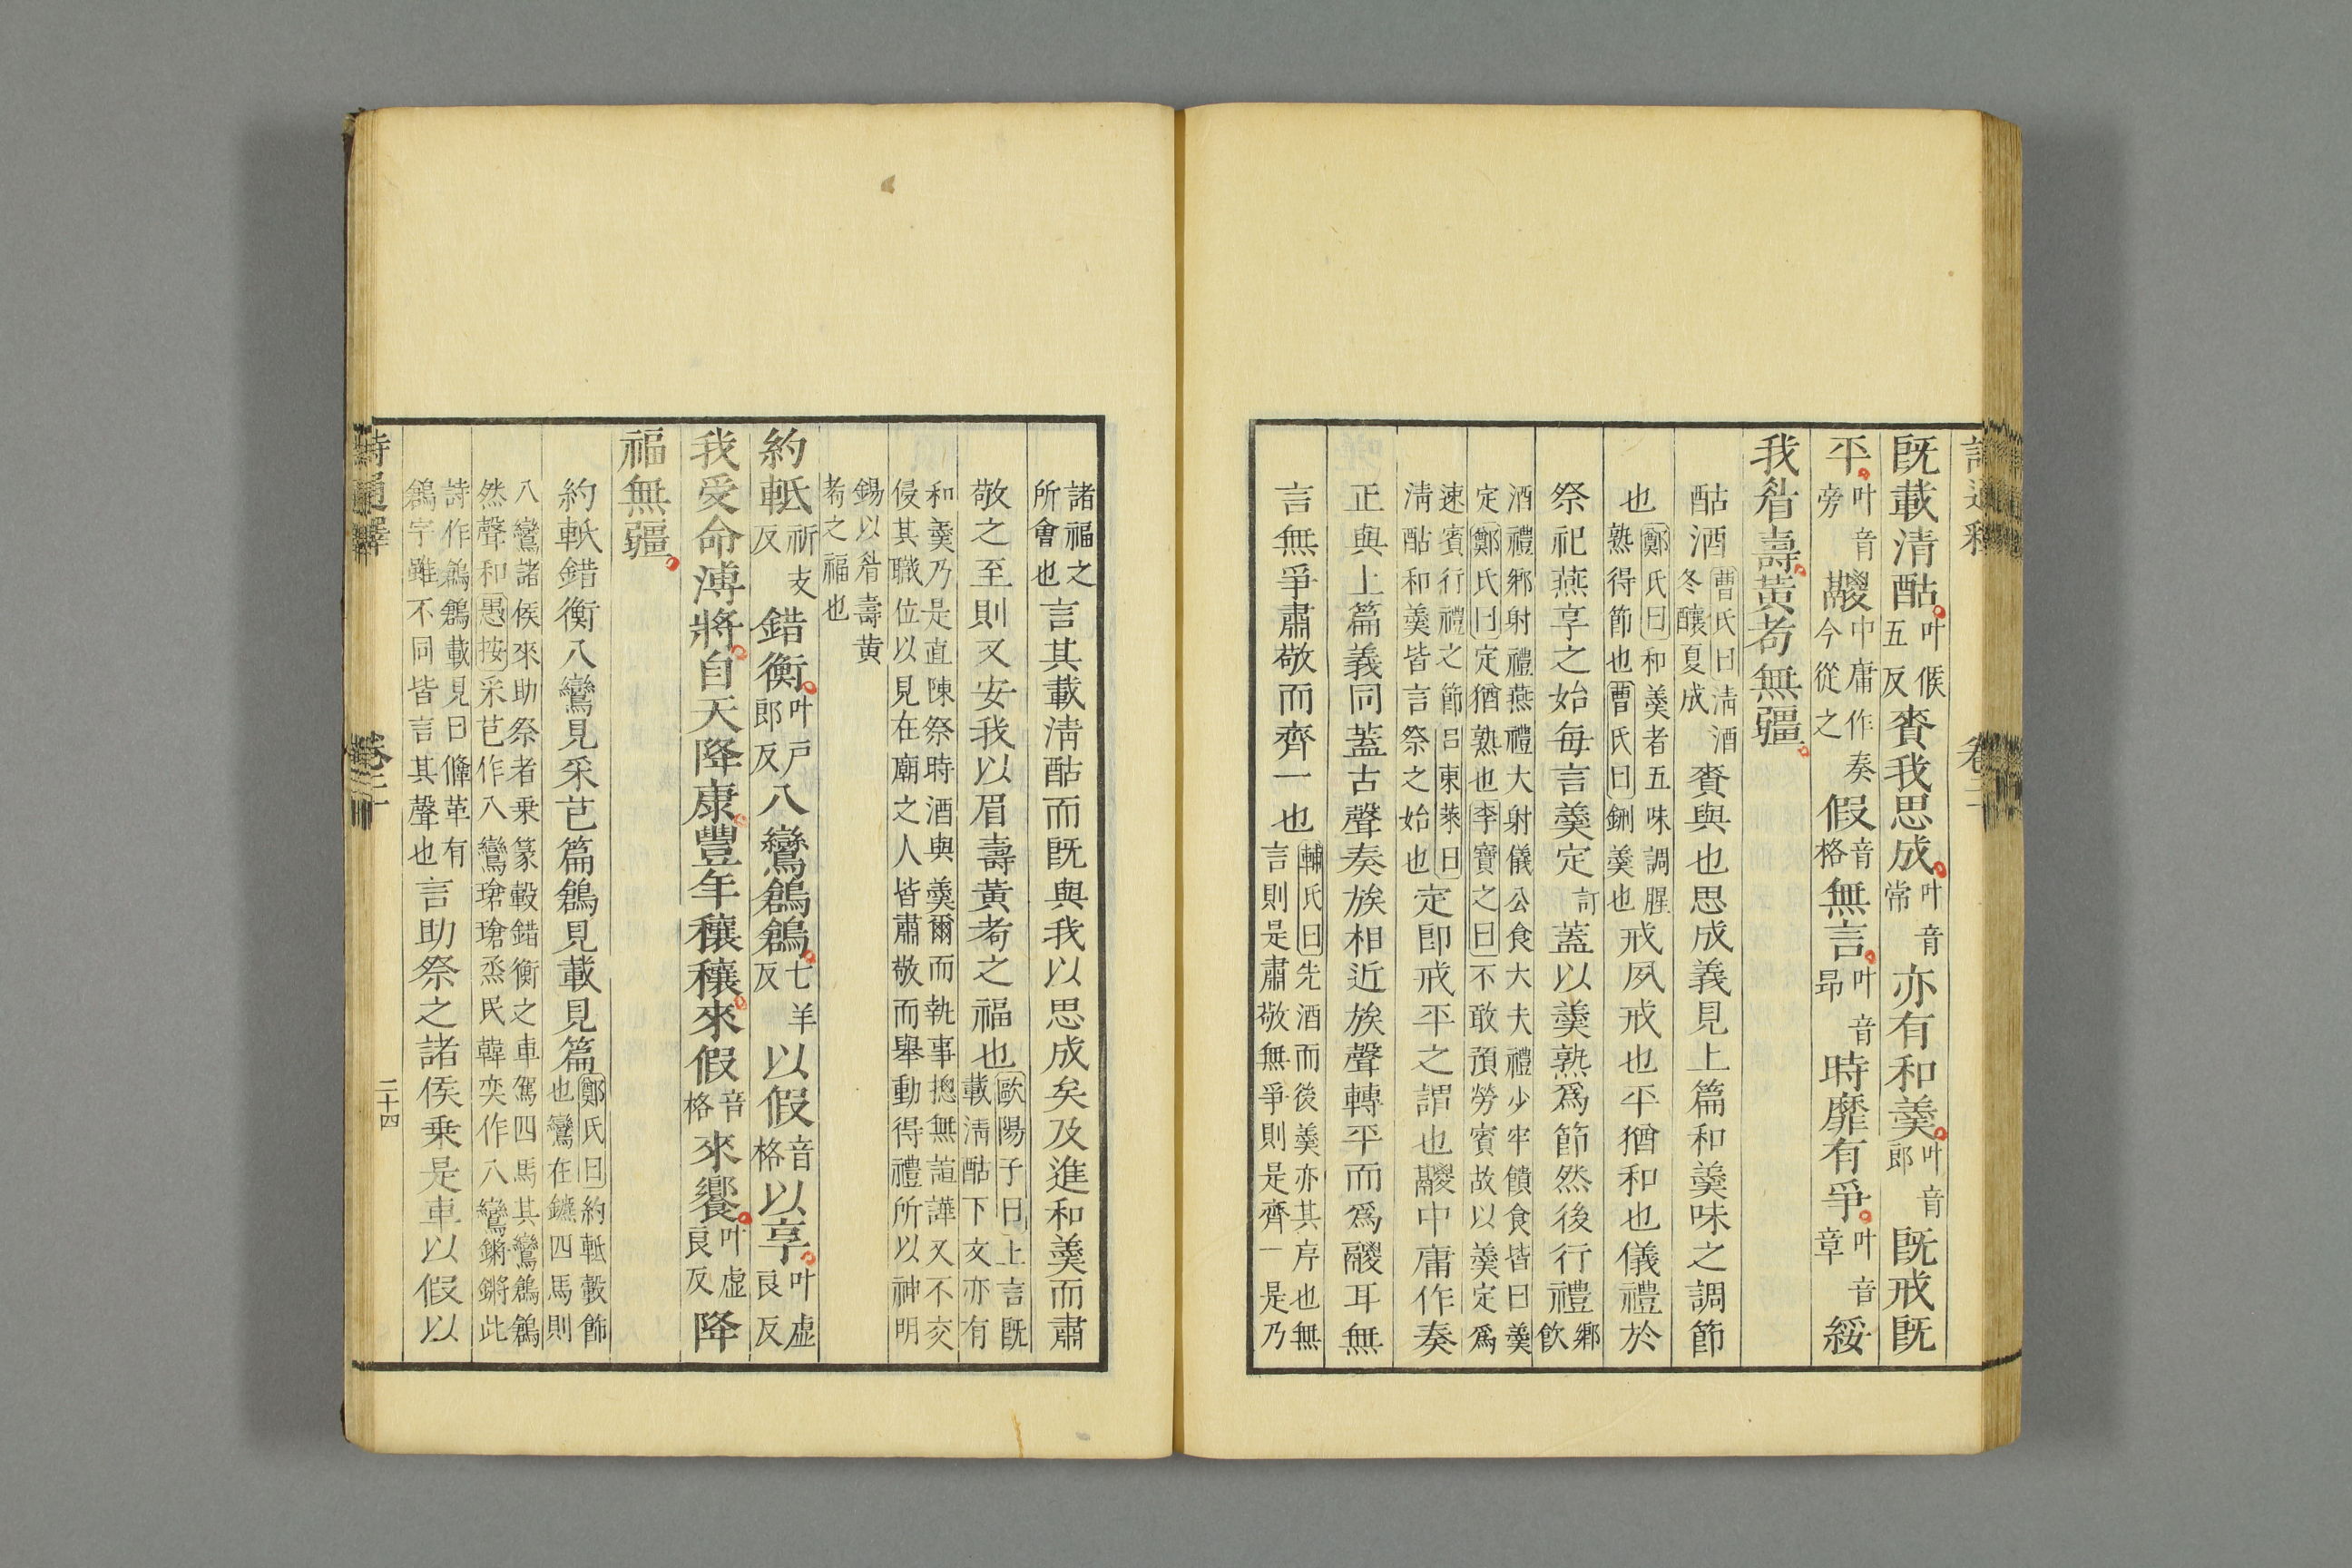 既載清酤叶候五反賚我思成叶音常亦有和羹叶音郎既戒既
平叶音旁鬷中庸作奏今從之假音格無言叶音昂時靡有爭叶音章綏
我眉壽黃耇無疆
酤酒曹氏曰清酒冬釀夏成賚與也思成義見上篇和羹味之調節
也鄭氏曰和羹者五味調腥熟得節也曹氏曰鉶羹也戒夙戒也平猶和也儀禮於
祭祀燕享之始每言羹定訂蓋以羹熟爲節然後行禮鄉飲
酒禮鄉射禮燕禮大射儀公食大夫禮少牢饋食皆曰羹定鄭氏曰定猶熟也李寶之曰不敢預勞賓故以羹定爲
速賓行禮之節呂東萊曰清酤和羹皆言祭之始也定卽戒平之謂也鬷中庸作奏
正與上篇義同蓋古聲奏族相近族聲轉平而爲鬷耳無
言無爭肅敬而齊一也輔氏曰先酒而後羹亦其序也無言則是肅敬無爭則是齊一是乃
諸福之所會也言其載清酤而既與我以思成矣及進和羹而肅
敬之至則又安我以眉壽黃耇之福也歐陽子曰上言既載清酤下文亦有
和羹乃是直陳祭時酒與羹爾而執事摠無諠譁又不交侵其職位以見在廟之人皆肅敬而舉動得禮所以神明
錫以眉壽黃耇之福也
約軝祈支反錯衡叶戶郎反八鸞鶬鶬七羊反以假音格以享叶虛良反
我受命溥將自天降康豐年穰穰來假音格來饗叶虛良反降
福無疆
約軝錯衡八鸞見采芑篇鶬見載見篇鄭氏曰約軝轂飾也鸞在鑣四馬則
八鸞諸侯來助祭者乗篆轂錯衡之車駕四馬其鸞鶬鶬然聲和愚按采芑作八鸞瑲瑲烝民韓奕作八鸞鏘鏘此
詩作鶬鶬載見曰鞗革有鶬字雖不同皆言其聲也言助祭之諸侯乗是車以假以
詩通釋 卷二 二十四